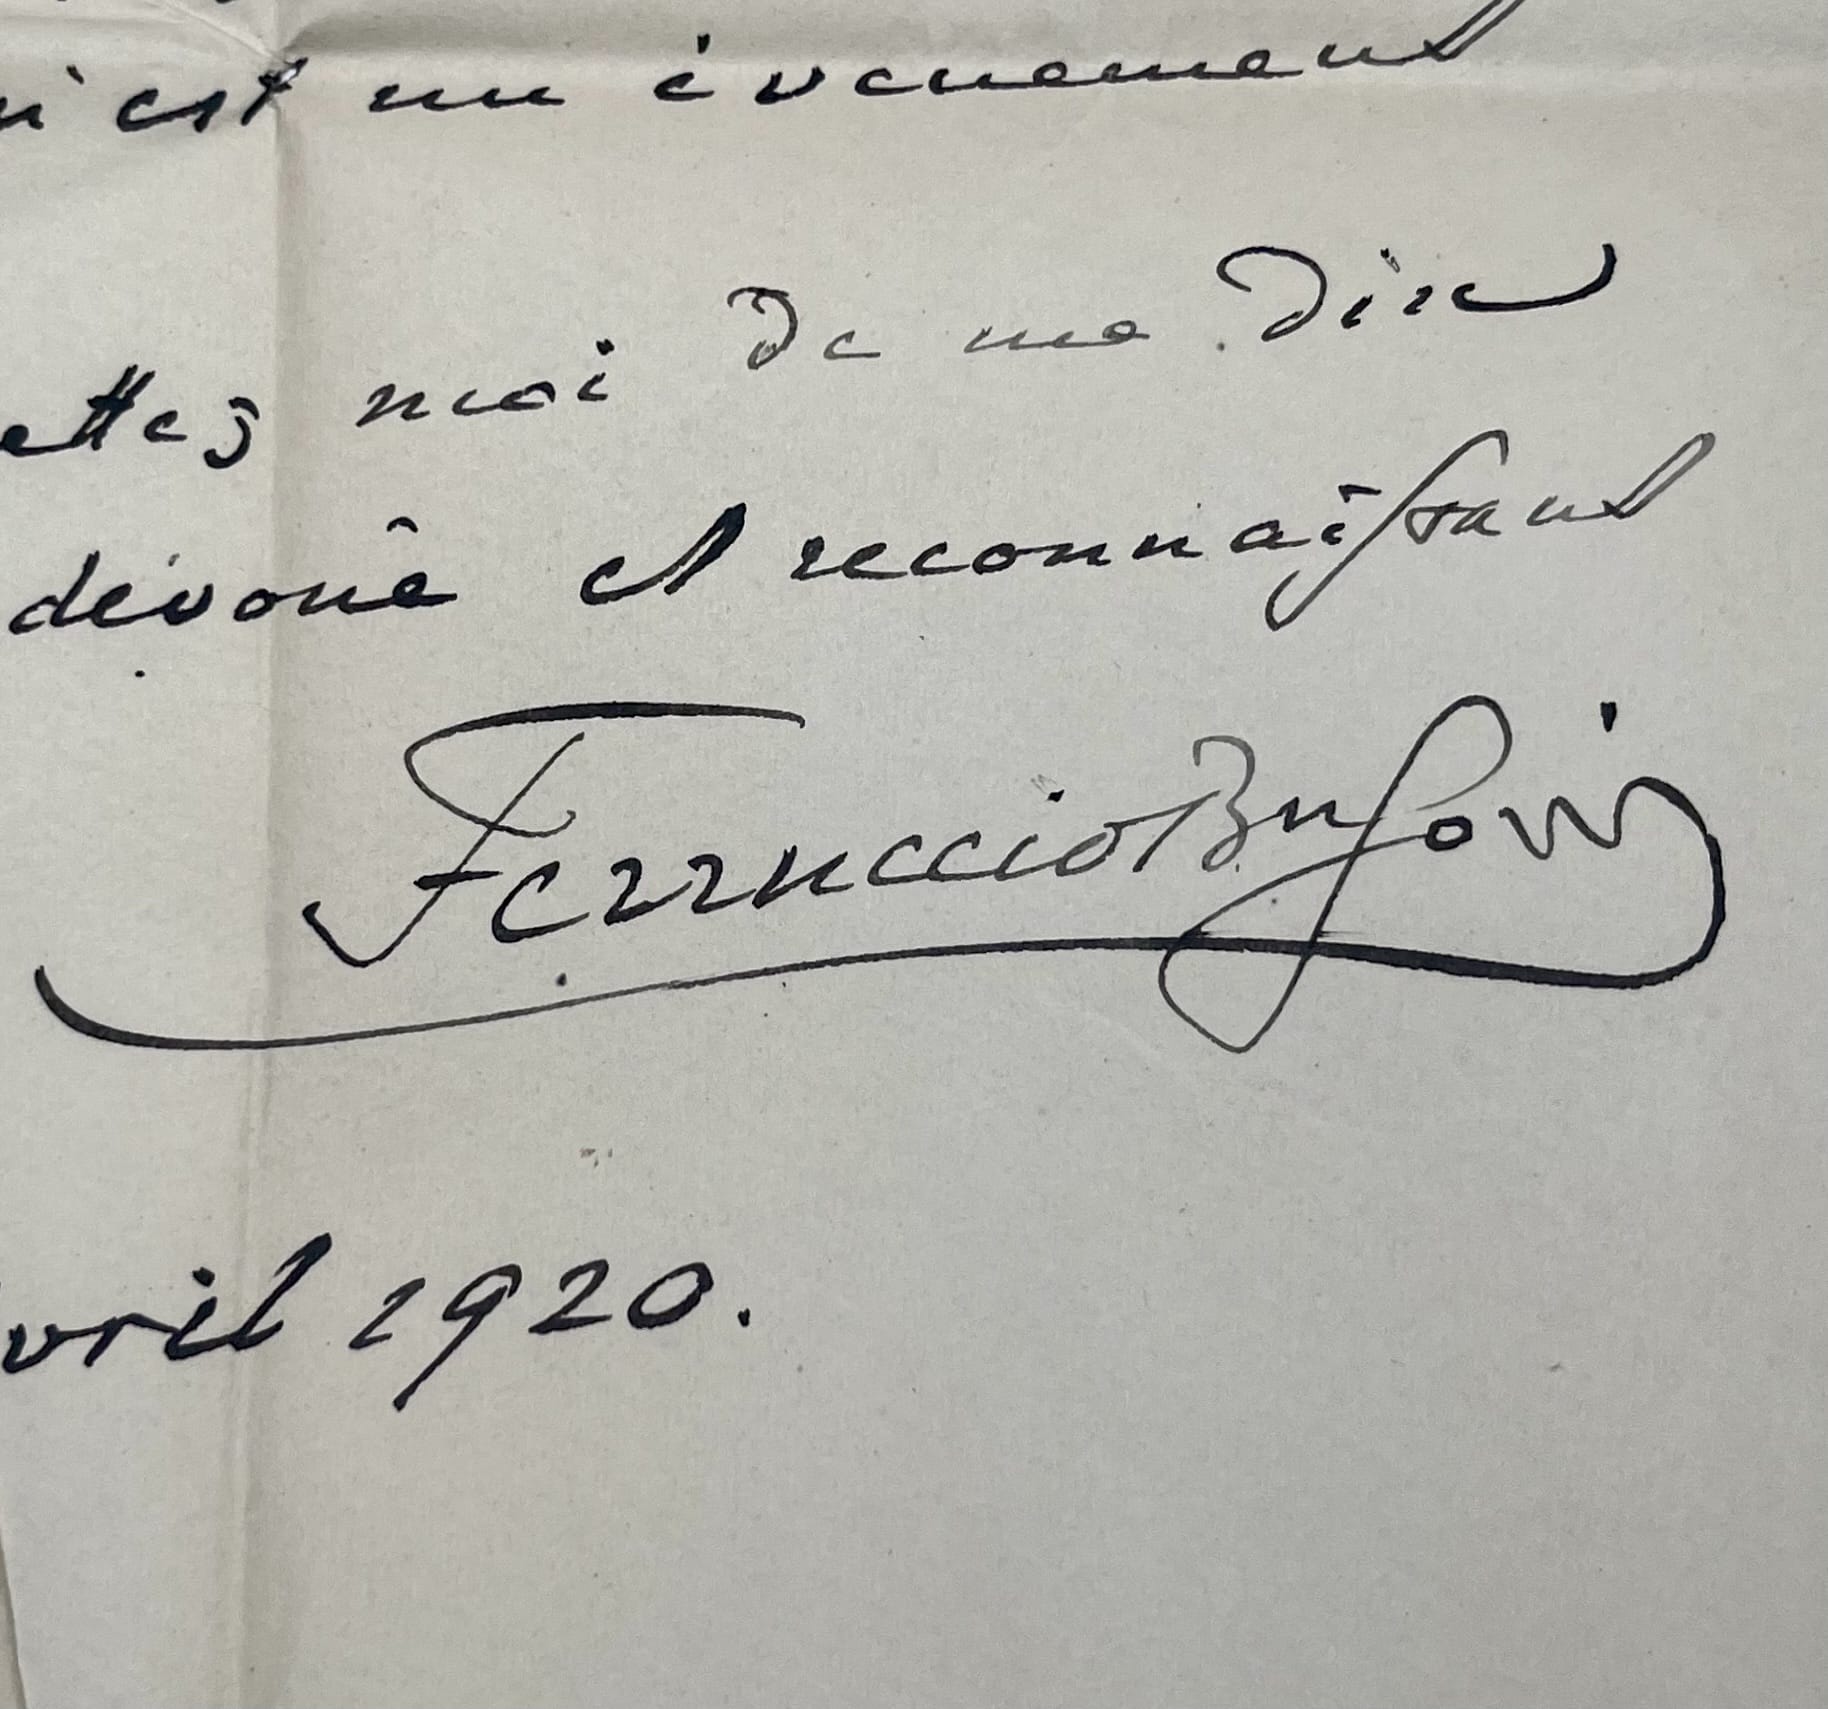 i est un évenement
ettez moi de me dire
dévoué et reconnaissant
Ferruccio Busoni
vril 1920.